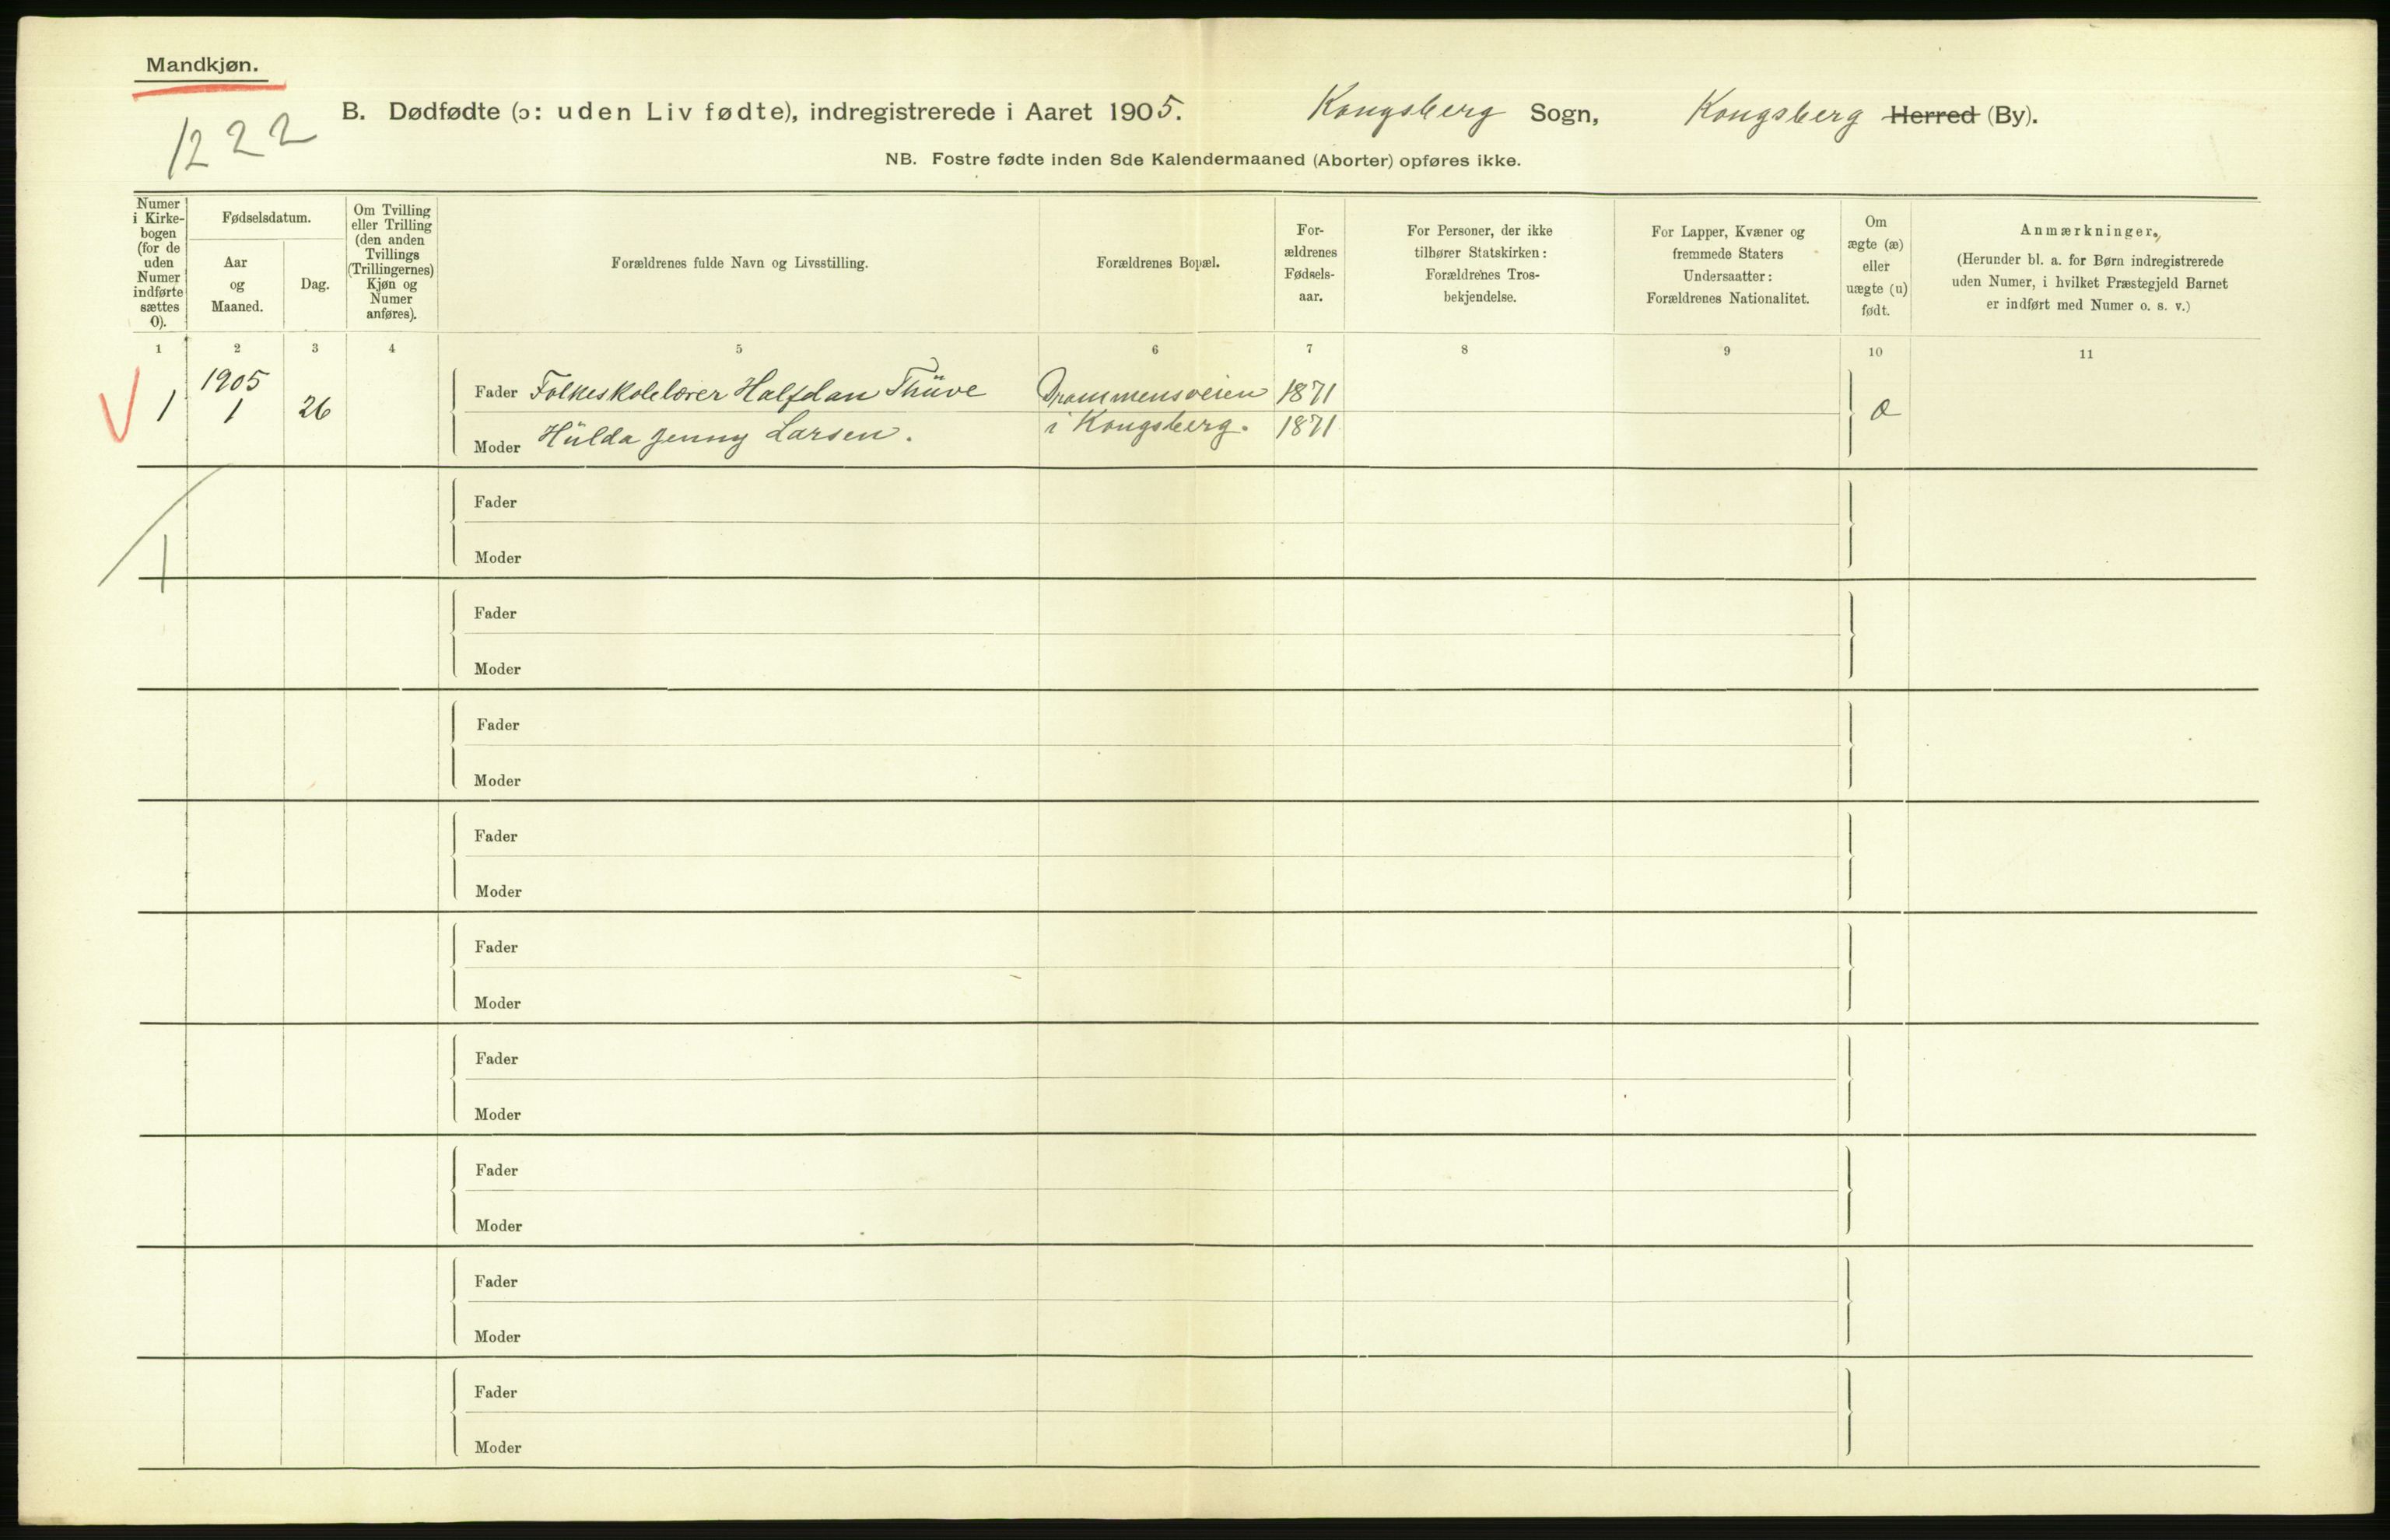 Mandkjøn.
1222
B. Dødfødte (ɔ: uden Liv fødte), indregistrerede i Aaret 1905. Kongsberg Sogn, Kongsberg Herred (By).
NB. Fostre fødte inden 8de Kalendermaaned (Aborter) opføres ikke.
Numer
i Kirke-
bogen
(for de
uden
Numer
indførte
sættes
0).
Fødselsdatum.
Aar
og
Maaned.
Dag.
Om Tvilling
eller Trilling
(den anden
Tvillings
(Trillingernes)
Kjøn og
Numer
anføres).
Forældrenes fulde Navn og Livsstilling.
Forældrenes Bopæl.
For-
ældrenes
Fødsels-
aar.
For Personer, der ikke
tilhører Statskirken:
Forældrenes Tros-
bekjendelse.
For Lapper, Kvæner og
fremmede Staters
Undersaatter:
Forældrenes Nationalitet.
Om
ægte (æ)
eller
uægte (u)
født.
Anmærkninger.
(Herunder bl. a. for Børn indregistrerede
uden Numer, i hvilket Præstegjeld Barnet
er indført med Numer o. s. v.)
1 2 3 4 5 6 7 8 9 10 11
1905
1 1 26
Fader Folkeskolelærer Halfdan Thüve Drammensveien 1871
Moder Hülda Jenny Larsen. i Kongsberg. 1871
æ
Fader
1
Moder
Fader
Moder
Fader
Moder
Fader
Moder
Fader
Moder
Fader
Moder
Fader
Moder
Fader
Moder
Fader
Moder